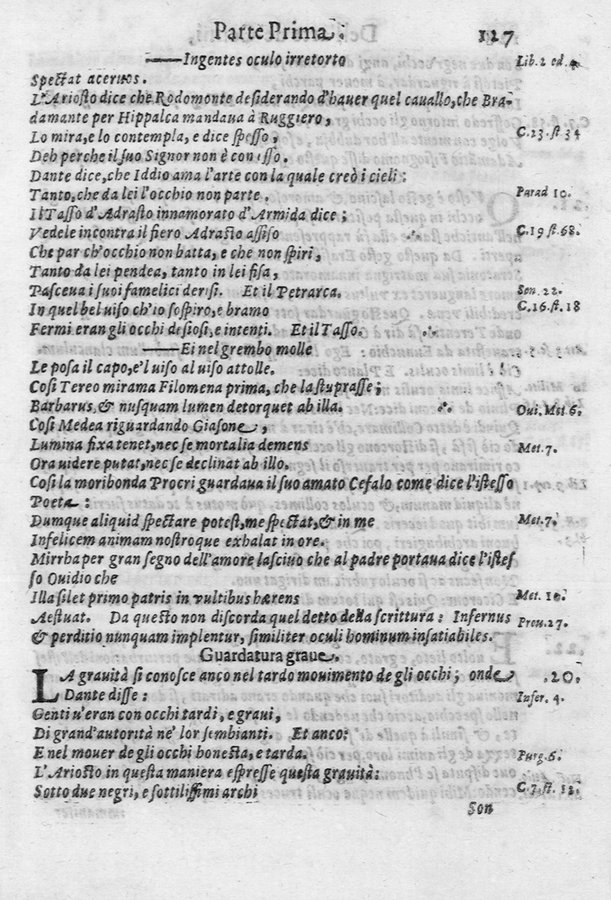 Parte Prima. 127
——Ingentes oculo irretorto Lib. 2 od.
Spectat aceruos.
L'Ariosto dice che Rodomonte desiderando d'hauer quel cauallo, che Bra-
damante per Hippalca mandaua à Ruggiero,
Lo mira, e lo contempla, e dice spesso, C. 23. st 34
Deh perche il suo Signor non è con esso.
Dante dice, che Iddio ama l'arte con la quale creò i cieli:
Tanto, che da lei l'occhio non parte. Parad 10.
Il Tasso d'Adrasto innamorato d'Armida dice;
Vedele incontra il fiero Adrasto assiso C. 19 st. 68.
Che par ch'occhio non batta, e che non spiri,
Tanto da lei pendea, tanto in lei fisa,
Pasceua i suoi famelici desiri. Et il Petrarca. Son. 22.
In quel bel uiso ch'io sospiro, e bramo C. 16. st. 18
Fermi eran gli occhi desiosi, e intenti. Et il Tasso.
——Ei nel grembo molle
Le posa il capo, e'l uiso al uiso attolle.
Cosi Tereo miraua Filomena prima, che la stuprasse;
Barbarus, & nusquam lumen detorquet ab illa. Oui. Met. 6.
Cosi Medea riguardando Giasone,
Lumina fixa tenet, nec se mortalia demens Met. 7.
Ora uidere putat, nec se declinat ab illo.
Cosi la moribonda Procri guardaua il suo amato Cefalo come dice l'istesso
Poeta:
Dumque aliquid spectare potest, me spectat, & in me Met. 7.
Infelicem animam nostroque exhalat in ore.
Mirrha per gran segno dell'amore lasciuo che al padre portaua dice l'istes
so Ouidio che
Illa silet primo patris in vultibus hærens Met. 10.
Aestuat. Da questo non discorda quel detto della scrittura: Infernus Prou. 27.
& perditio nunquam implentur, similiter oculi hominum insatiabiles.
Guardatura graue.
LA grauità si conosce anco nel tardo mouimento de gli occhi; onde 20.
Dante disse: Infer. 4.
Genti u'eran con occhi tardi, e graui,
Di grand'autorità ne' lor sembianti. Et anco:
E nel mouer de gli occhi honesta, e tarda. Purg. 6.
L'Ariosto in questa maniera espresse questa grauità:
Sotto due negri, e sottilissimi archi C. 7. st. 12.
Son